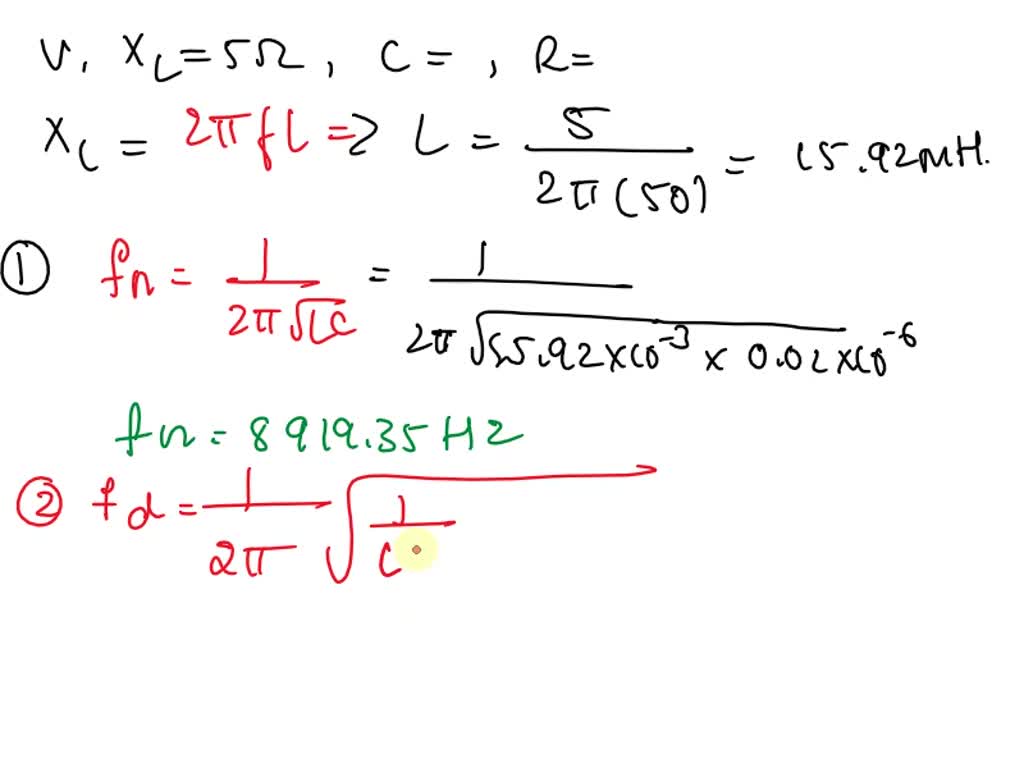 V, X_L = 5Ω, C = , R =
X_L = 2πfL => L = 5 / 2π(50) = 15.92mH.
① fn = 1 / 2π√LC = 1 / 2π√15.92×10^-3 × 0.02×10^-6
fn = 8919.35 HZ
② fd = 1 / 2π √ 1 / L